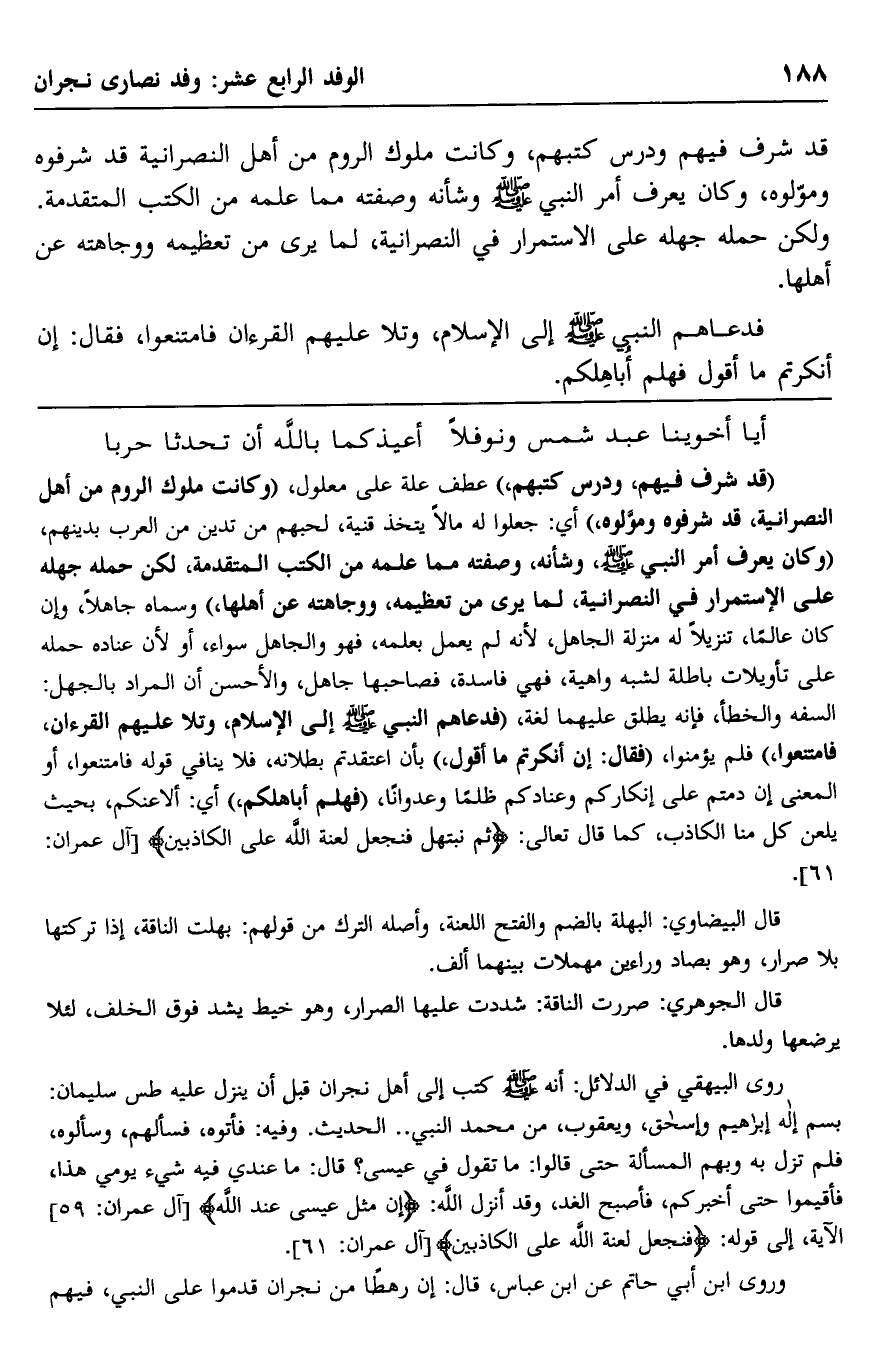 ١٨٨ الوفد الرابع عشر: وفد نصارى نجران
قد شرف فيهم ودرس كتبهم، وكانت ملوك الروم من أهل النصرانية قد شرفوه
وموّلوه، وكان يعرف أمر النبي ﷺ وشأنه وصفته مما علمه من الكتب المتقدمة.
ولكن حمله جهله على الاستمرار في النصرانية، لما يرى من تعظيمه ووجاهته عن
أهلها.
فدعاهم النبي ﷺ إلى الإسلام، وتلا عليهم القرءان فامتنعوا، فقال: إن
أنكرتم ما أقول فهلم أُباهِلكم.
أيا أخوينا عبد شمس ونوفلاً أعيذكما باللَّه أن تحدثا حربا
(قد شرف فيهم، ودرس كتبهم،) عطف علة على معلول، (وكانت ملوك الروم من أهل
النصرانية، قد شرفوه وموَّلوه،) أي: جعلوا له مالاً يتخذ قنية، لحبهم من تدين من العرب بدينهم،
(وكان يعرف أمر النبي ﷺ، وشأنه، وصفته مما علمه من الكتب المتقدمة، لكن حمله جهله
على الإستمرار في النصرانية، لما يرى من تعظيمه، ووجاهته عن أهلها،) وسماه جاهلاً، وإن
كان عالمًا، تنزيلاً له منزلة الجاهل، لأنه لم يعمل بعلمه، فهو والجاهل سواء، أو لأن عناده حمله
على تأويلات باطلة لشبه واهية، فهي فاسدة، فصاحبها جاهل، والأحسن أن المراد بالجهل:
السفه والخطأ، فإنه يطلق عليهما لغة، (فدعاهم النبي ﷺ إلى الإسلام، وتلا عليهم القرءان،
فامتنعوا،) فلم يؤمنوا، (فقال: إن أنكرتم ما أقول،) بأن اعتقدتم بطلانه، فلا ينافي قوله فامتنعوا، أو
المعنى إن دمتم على إنكاركم وعنادكم ظلمًا وعدوانًا، (فهلم أباهلكم،) أي: ألاعنكم، بحيث
يلعن كل منا الكاذب، كما قال تعالى: ﴿ثم نبتهل فنجعل لعنة اللَّه على الكاذبين﴾ [آل عمران:
٦١].
قال البيضاوي: البهلة بالضم والفتح اللعنة، وأصله الترك من قولهم: بهلت الناقة، إذا تركتها
بلا صرار، وهو بصاد وراءين مهملات بينهما ألف.
قال الجوهري: صررت الناقة: شددت عليها الصرار، وهو خيط يشد فوق الخلف، لئلا
يرضعها ولدها.
روى البيهقي في الدلائل: أنه ﷺ كتب إلى أهل نجران قبل أن ينزل عليه طس سليمان:
بسم إلٰه إبرٰهيم وإسحٰق، ويعقوب، من محمد النبي.. الحديث. وفيه: فأتوه، فسألهم، وسألوه،
فلم تزل به وبهم المسألة حتى قالوا: ما تقول في عيسى؟ قال: ما عندي فيه شيء يومي هذا،
فأقيموا حتى أخبركم، فأصبح الغد، وقد أنزل اللَّه: ﴿إن مثل عيسى عند اللَّه﴾ [آل عمران: ٥٩]
الآية، إلى قوله: ﴿فنجعل لعنة اللَّه على الكاذبين﴾ [آل عمران: ٦١].
وروى ابن أبي حاتم عن ابن عباس، قال: إن رهطًا من نجران قدموا على النبي، فيهم